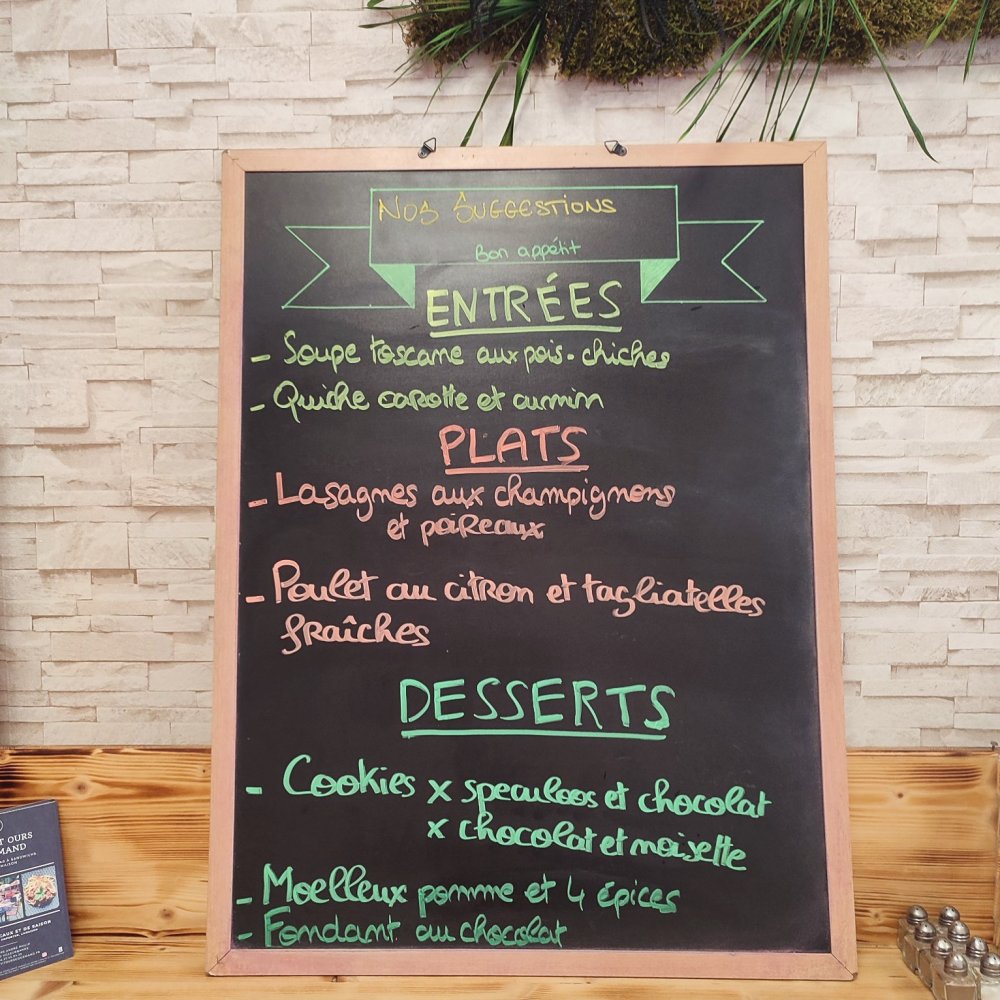 NOS SUGGESTIONS
Bon appétit
ENTRÉES
- Soupe toscane aux pois-chiches
- Quiche carotte et cumin
PLATS
- Lasagnes aux champignons
et poireaux
- Poulet au citron et tagliatelles
fraîches
DESSERTS
- Cookies x speculoos et chocolat
x chocolat et noisette
- Moelleux pomme et 4 épices
- Fondant au chocolat
OURS
MAND